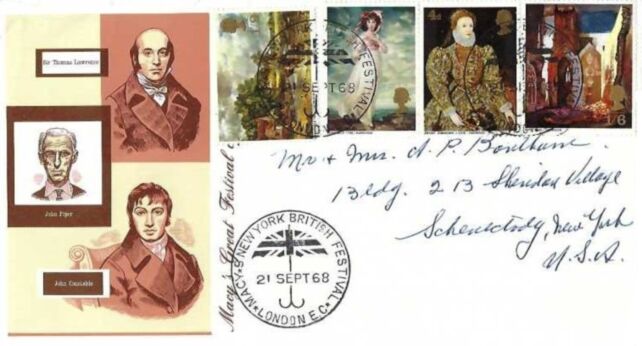 Sir Thomas Lawrence
John Piper
John Constable
Macy's Great Festival
FESTIVAL
21 SEPT 68
LONDON E.C.
4d
FESTIVAL
21 SEPT 68
LONDON E.C.
1/6
MACY'S NEW YORK BRITISH FESTIVAL
21 SEPT 68
LONDON E.C.
Mr & Mrs. A. P.
Bldg. 2 B Sheridan Village
Schenectady, New York
U.S.A.